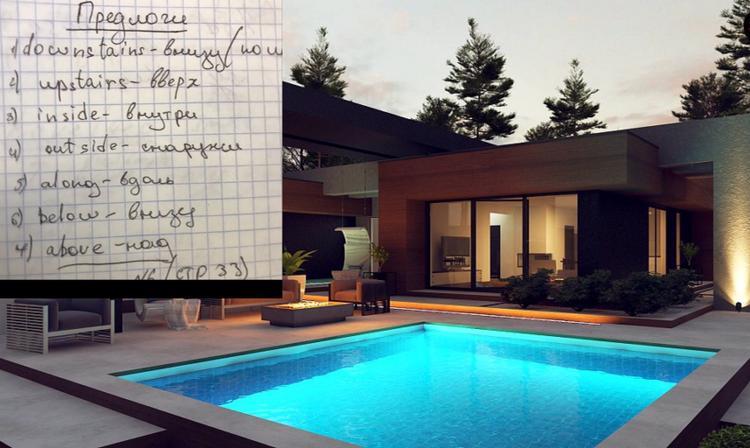 Предлоги
1) downstairs - внизу/по
2) upstairs - вверх
3) inside - внутри
4) outside - снаружи
5) along - вдоль
6) below - внизу
7) above - над
№6 (стр 33)